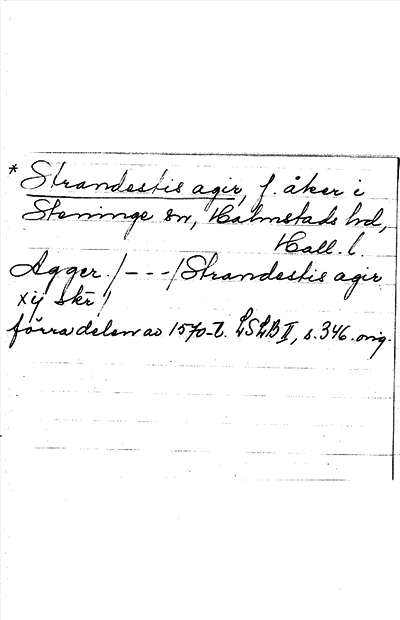 * Strandestis agir, f. åker i
Steninge sn, Halmstads hd,
Hall. l.
Agger. /---/ Strandestis agir
xij skr /
förra delen av 1570-t. LSLB II, s. 346. orig.